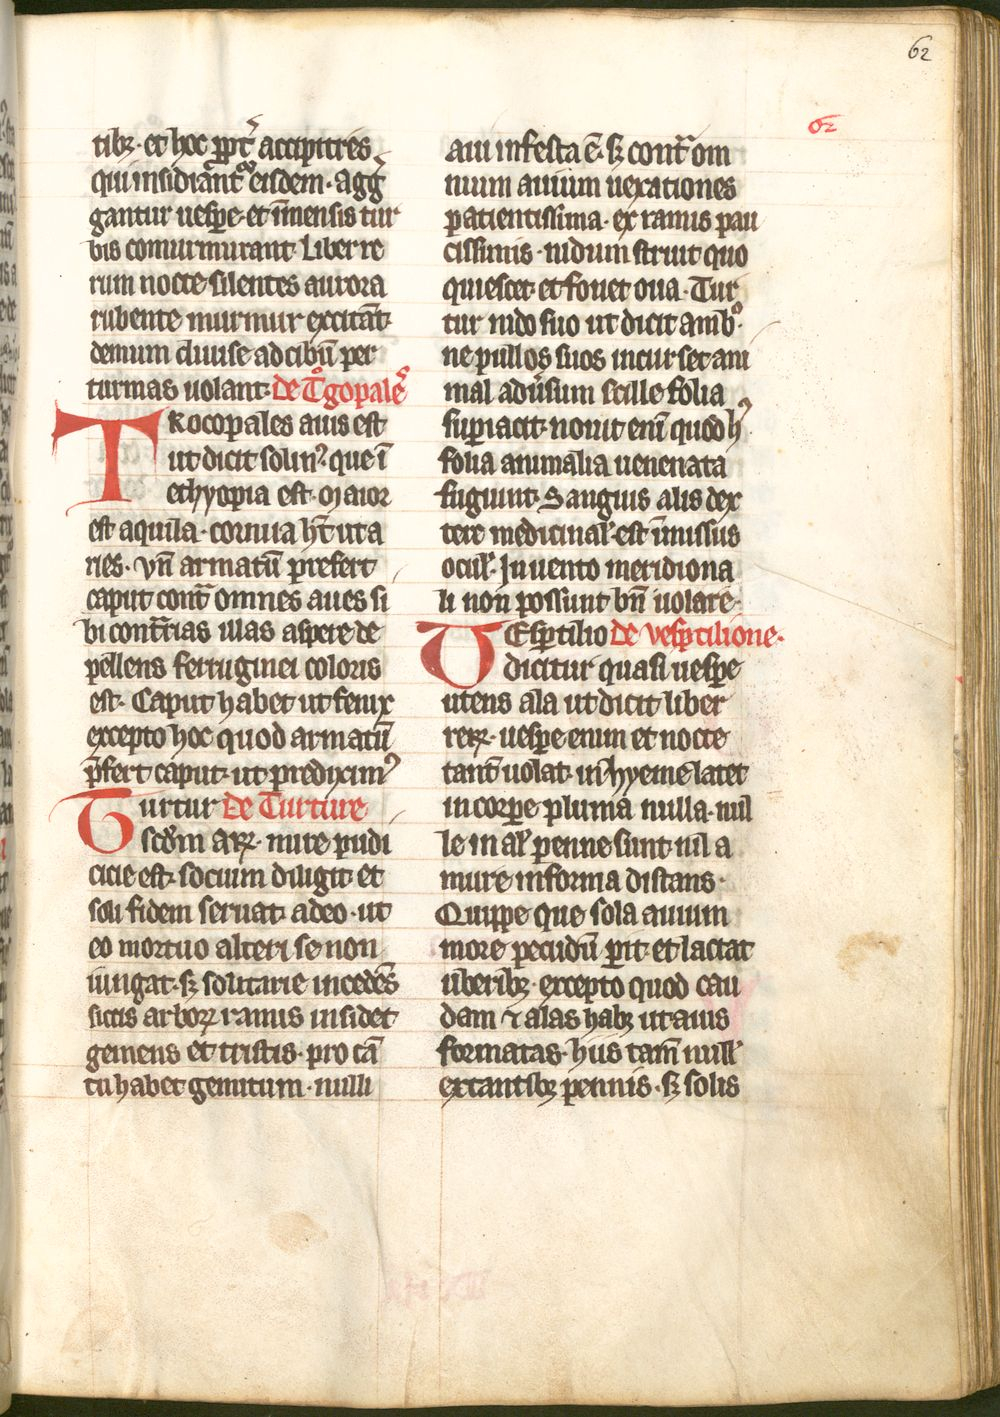 62
62
tibꝫ · et hoc ꝓpt̃ accipitres
qui insidiant᷑ eisdem · agg̃
gantur uesꝑe · et īmensis tur
bis comurmurant Liber re
rum nocte silentes aurora
rubente murmur excitāt ·
demum diuise ad cibū per
turmas uolant ·
Trocopales auis est
ut dicit solinꝰ · que ī
ethyopia est · Maior
est aquila · cornua hn̄t ut a
ries · vn̄ armatū prefert
caput cont̃ omnes aues si
bi cont̃rias illas aspere de
pellens ferruginei coloris
est · Caput habet ut fenix
excepto hoc quod armatū
p̄fert caput · ut prediximꝰ
Turtur de Turture
scd̄m arꝝ · mire pudi
cicie est · socium diligit · et
soli fidem seruat · adeo · ut
eo mortuo alteri se non
iungat · sꝫ solitarie incedēs
siccis arboꝝ ramis insidet
gemens et tristis · pro cā
tu habet gemitum · nulli
aui infesta ē · sꝫ cont̃ om
nium auium uexationes
patientissima · ex ramis pau
cissimis · nidum struit quo
quiescet · et fouet oua · Tur
tur nido suo ut dicit ambꝰ ·
ne pullos suos incurset ani
mal adūsum scille folia
suꝑiacit · nouit enī quod hꝰ
folia animalia uenenata
fugiunt · Sanguis alis dex
tere medicinal̛ · est īmissus
ocul̛ · In uento meridiona
li non possunt bn̄ uolare ·
Vesꝑtilio de vesꝑtilione ·
dicitur quasi uesꝑe
utens ala ut dicit liber
reꝝ · uesꝑe enim et nocte
tant̄ uolat · in hyeme latet
in corꝑe pluma nulla · nul
le in al̛ penne sunt · nil a
mure in forma distans ·
Quippe que sola auium
more pecudū ꝑit · et lactat
uberibꝫ · excepto quod cau
dam ⁊ alas habꝫ ut auis
formatas · hiis tam̄ null̛
extantibꝫ pennis · sꝫ solis